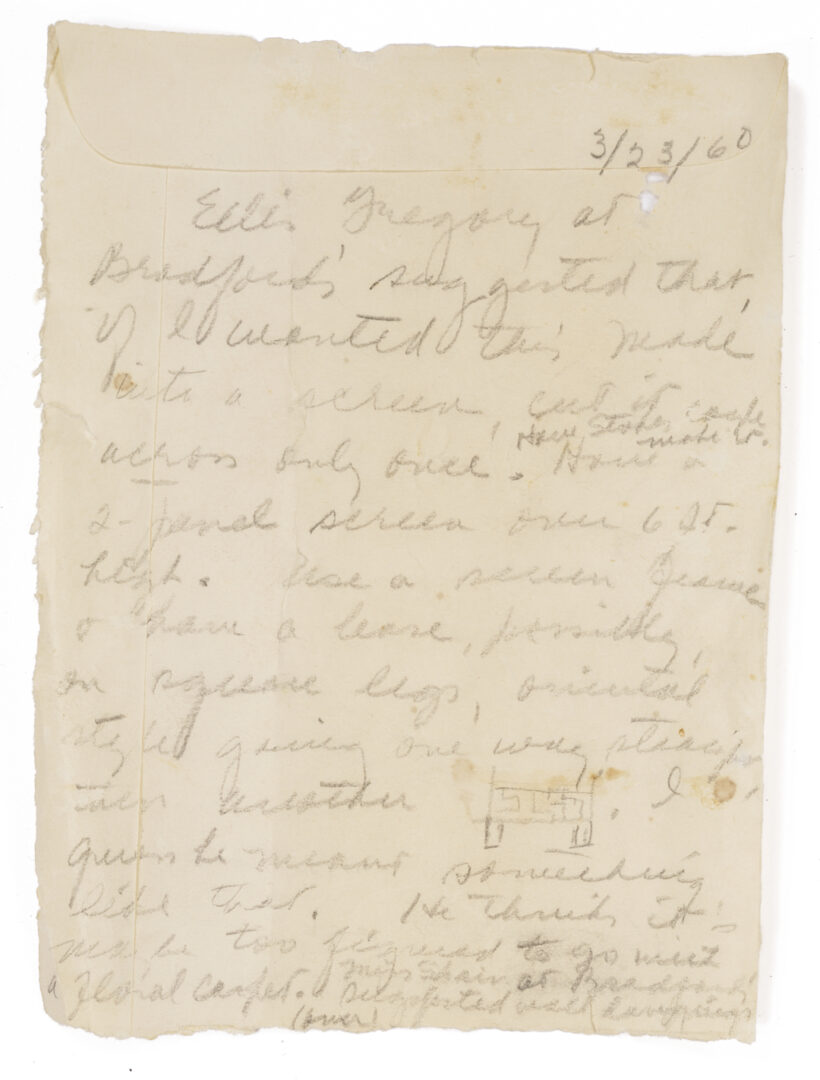 3/23/60
Ellis Gregory at
Bradford's suggested that,
if I wanted this made
into a screen, cut it
across only once. Have a
Have made it.
2-panel screen over 6 ft.
high. Use a screen frame
& have a base, possibly,
on square legs, oriental
style going one way, straight
then another . I
guess he meant something
like that. He thinks it
may be too figured to go with
a floral carpet. Miss at Bradford's
suggested wall hangings
(over)